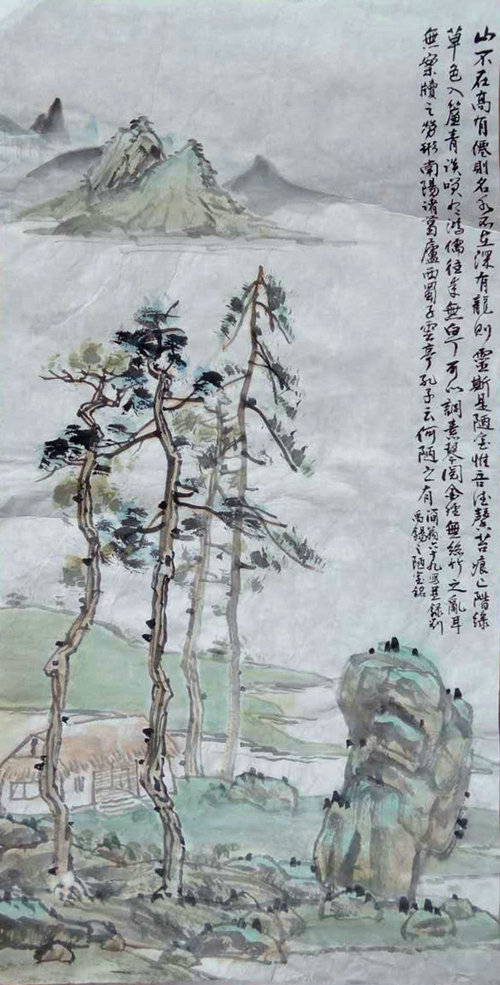 山不在高有僊則名水不在深有龍則靈斯是陋室惟吾德馨苔痕上階綠
草色入簾青談笑有鴻儒往來無白丁可以調素琴閱金經無絲竹之亂耳
無案牘之勞形南陽諸葛廬西蜀子雲亭孔子云何陋之有
六十九寫並錄刘
禹錫之陋室銘